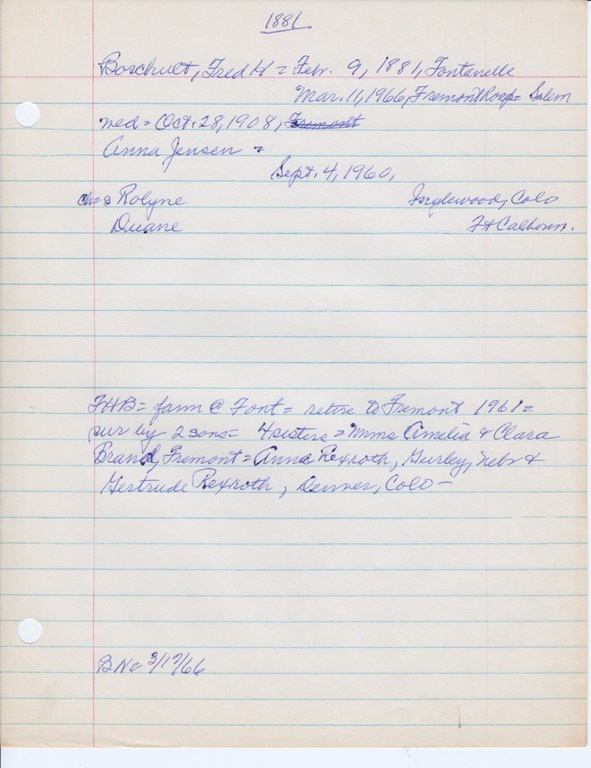 1881
Boschult, Fred H = Febr. 9, 1881, Fontanelle
Mar. 11, 1966, Fremont Hosp = Salem
wed = Oct. 28, 1908, Fremont
Anna Jensen =
Sept. 4, 1960,
ch = Rolyne Inglewood, Colo
Duane Ft Calhoun.
FHB = farm @ Font = retire to Fremont 1961 =
sur by 2 sons = 4 sisters = Mmms Amelia & Clara
Brand, Fremont = Anna Rexroth, Gurley, Nebr &
Gertrude Rexroth, Denver, Colo -
3/17/66